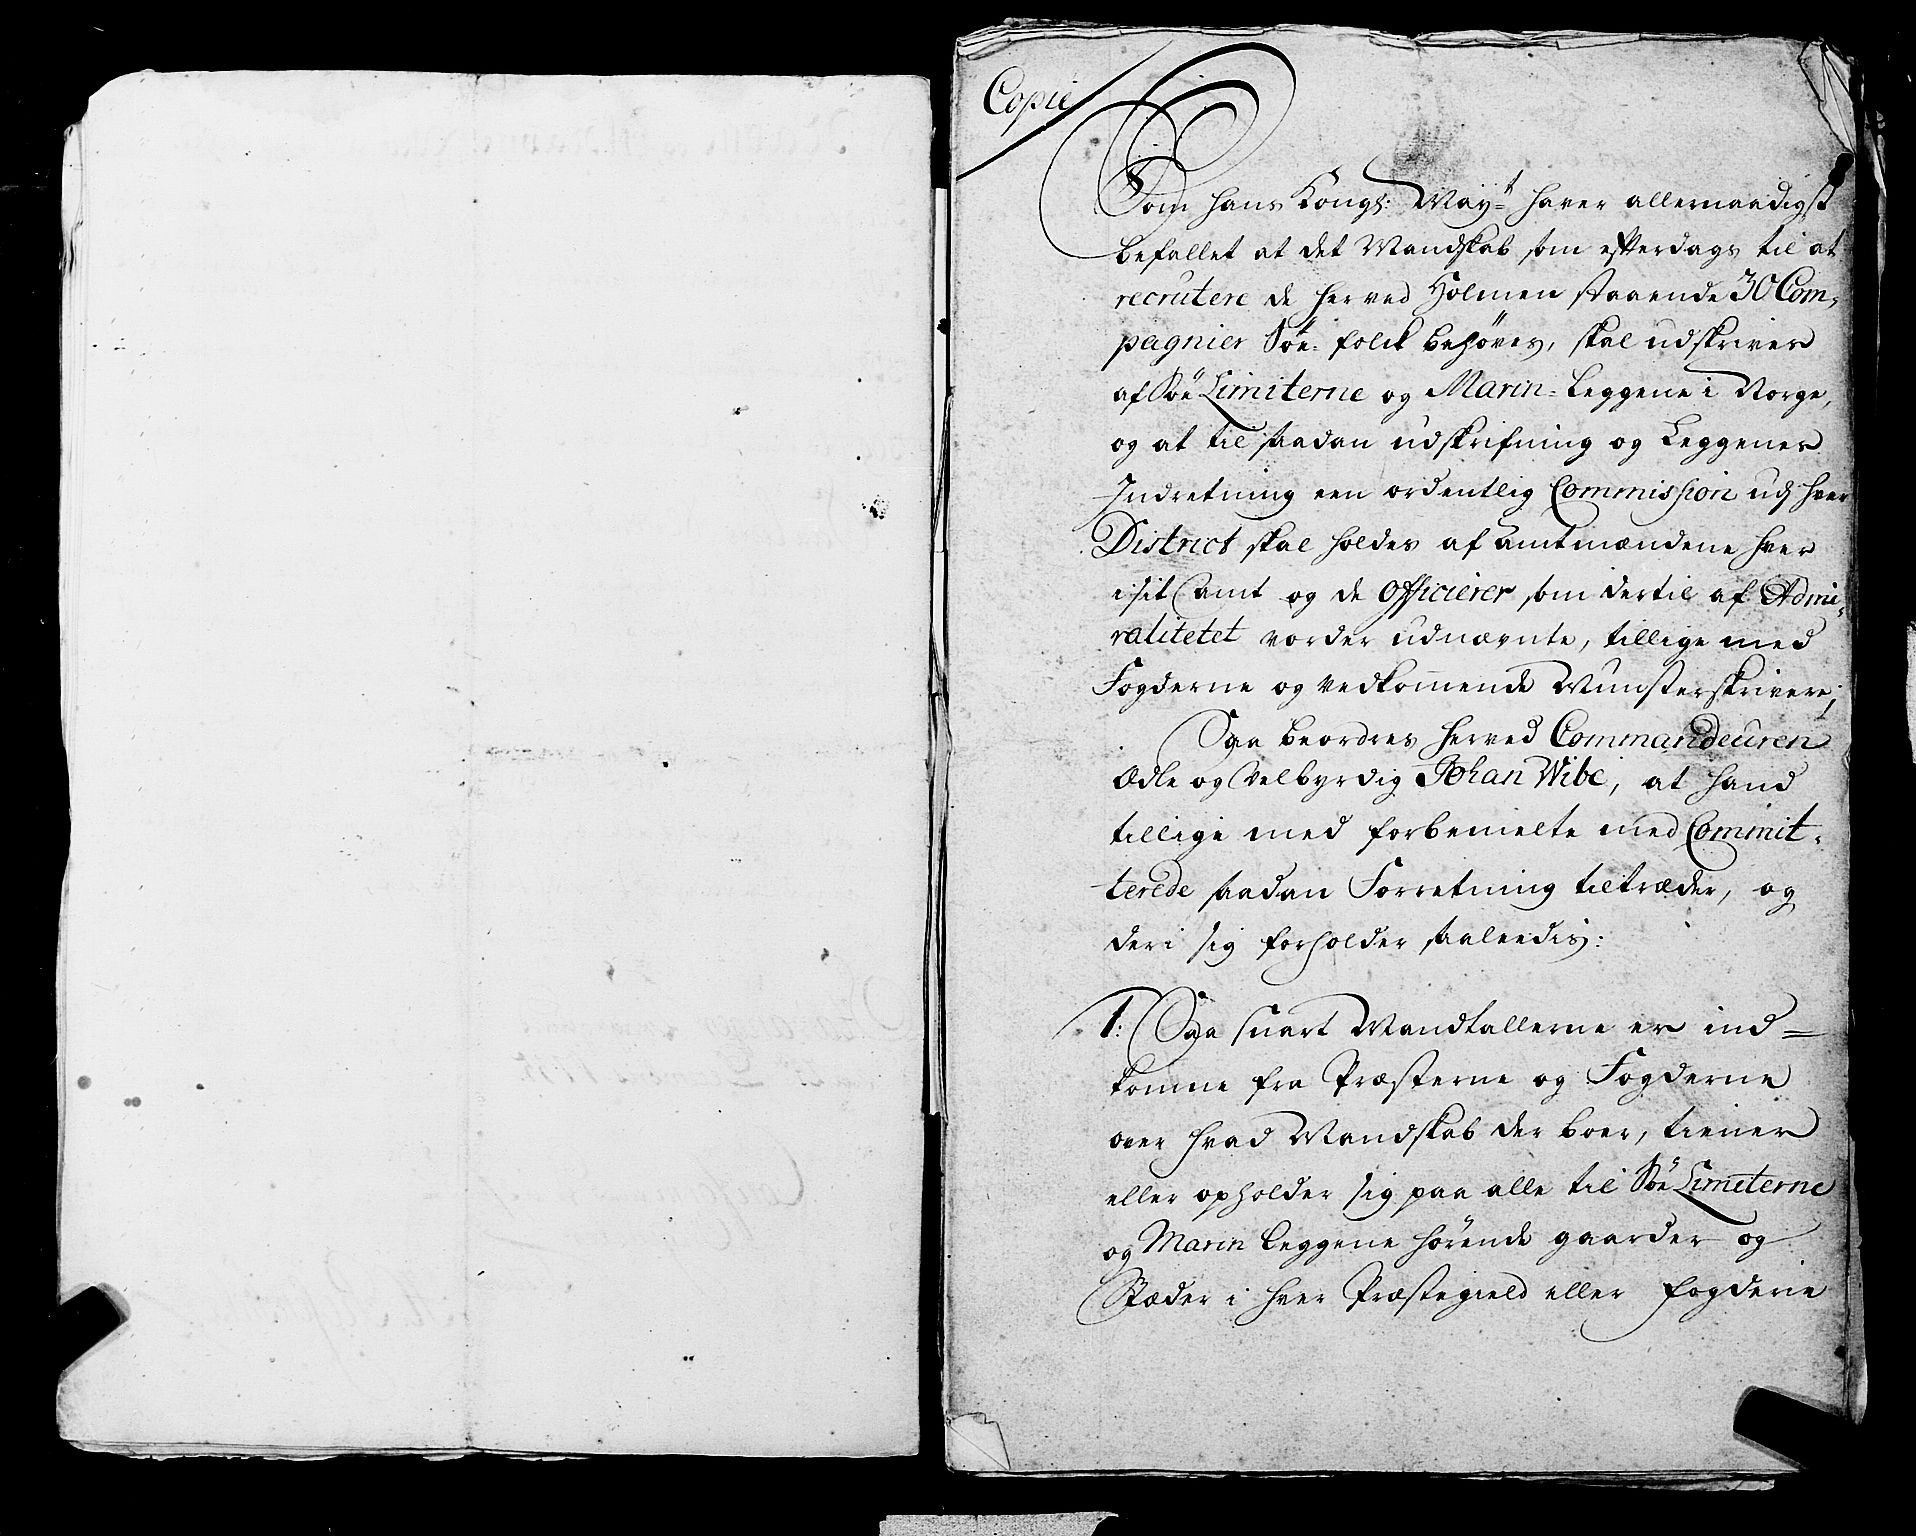 Copie
Som Hans Kongl: May:t haver allernaadigst
befallet at det Mandskab som efterdags til at
recrutere de her ved Holmen staaende 30 Com-
pagnier Søe-folck behøves, skal udskrives
af Søe Limiterne og Marin-Leggene i Norge,
og at til saadan udskrifning og Leggenes
Indretning een ordentlig Commission udj hver
District skal holdes af Amtmændene hver
i sit Amt og de Officierer som dertil af Admi-
ralitetet vorder udnævnte, tillige med
Fogderne og vedkommende Munsterskrivere;
Saa beordres herved Commandeuren
Ædle og Velbyrdig Johan Wibe, at hand
tillige med forbemelte med Commit-
terede saadan Forretning tiltræder, og
deri sig forholder saaleedis:
1: Saa snart Mandtallerne er ind-
komne fra Præsterne og Fogderne
over hvad Mandskab der boer, tiener
eller opholder sig paa alle til Søe Limiterne
og Marin Leggene hørende gaarder og
Stæder i hver Præstegield eller fogderie